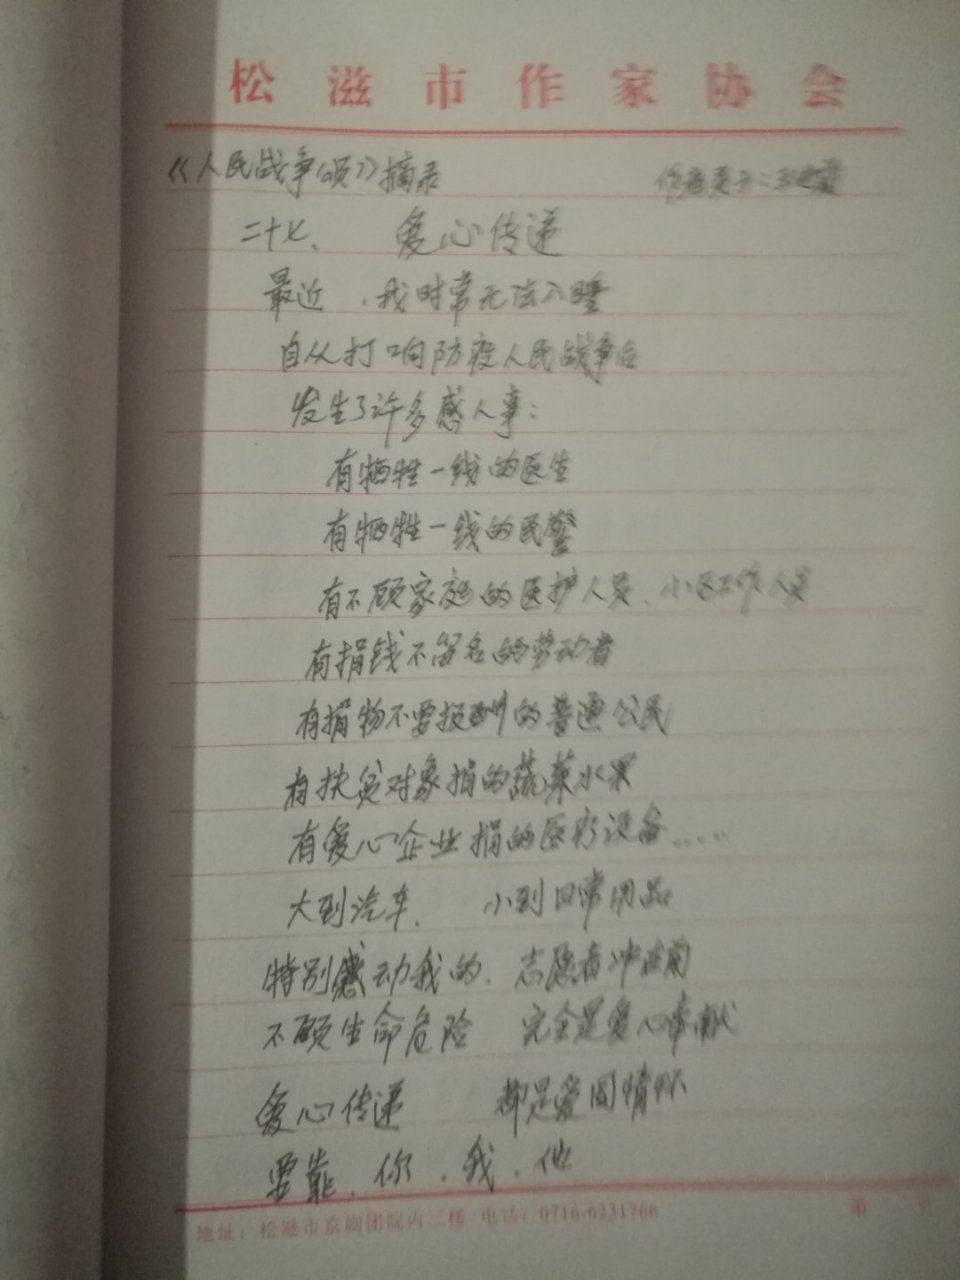 松滋市作家协会
《人民战争颂》摘录
二十七、 爱心传递
最近，我时常无法入睡
自从打响防疫人民战争后
发生了许多感人事：
有牺牲一线的医生
有牺牲一线的民警
有不顾家庭的医护人员、小区工作人员
有捐钱不留名的劳动者
有捐物不要报酬的普通公民
有扶贫对象捐的蔬菜水果
有爱心企业捐的医疗设备……
大到汽车、 小到日常用品
特别感动我的、志愿者冲在前
不顾生命危险 完全是爱心奉献
爱心传递 都是爱国情怀
要靠、你、我、他
地址：松滋市京剧团院内二楼 电话：0716-6231766
第 页